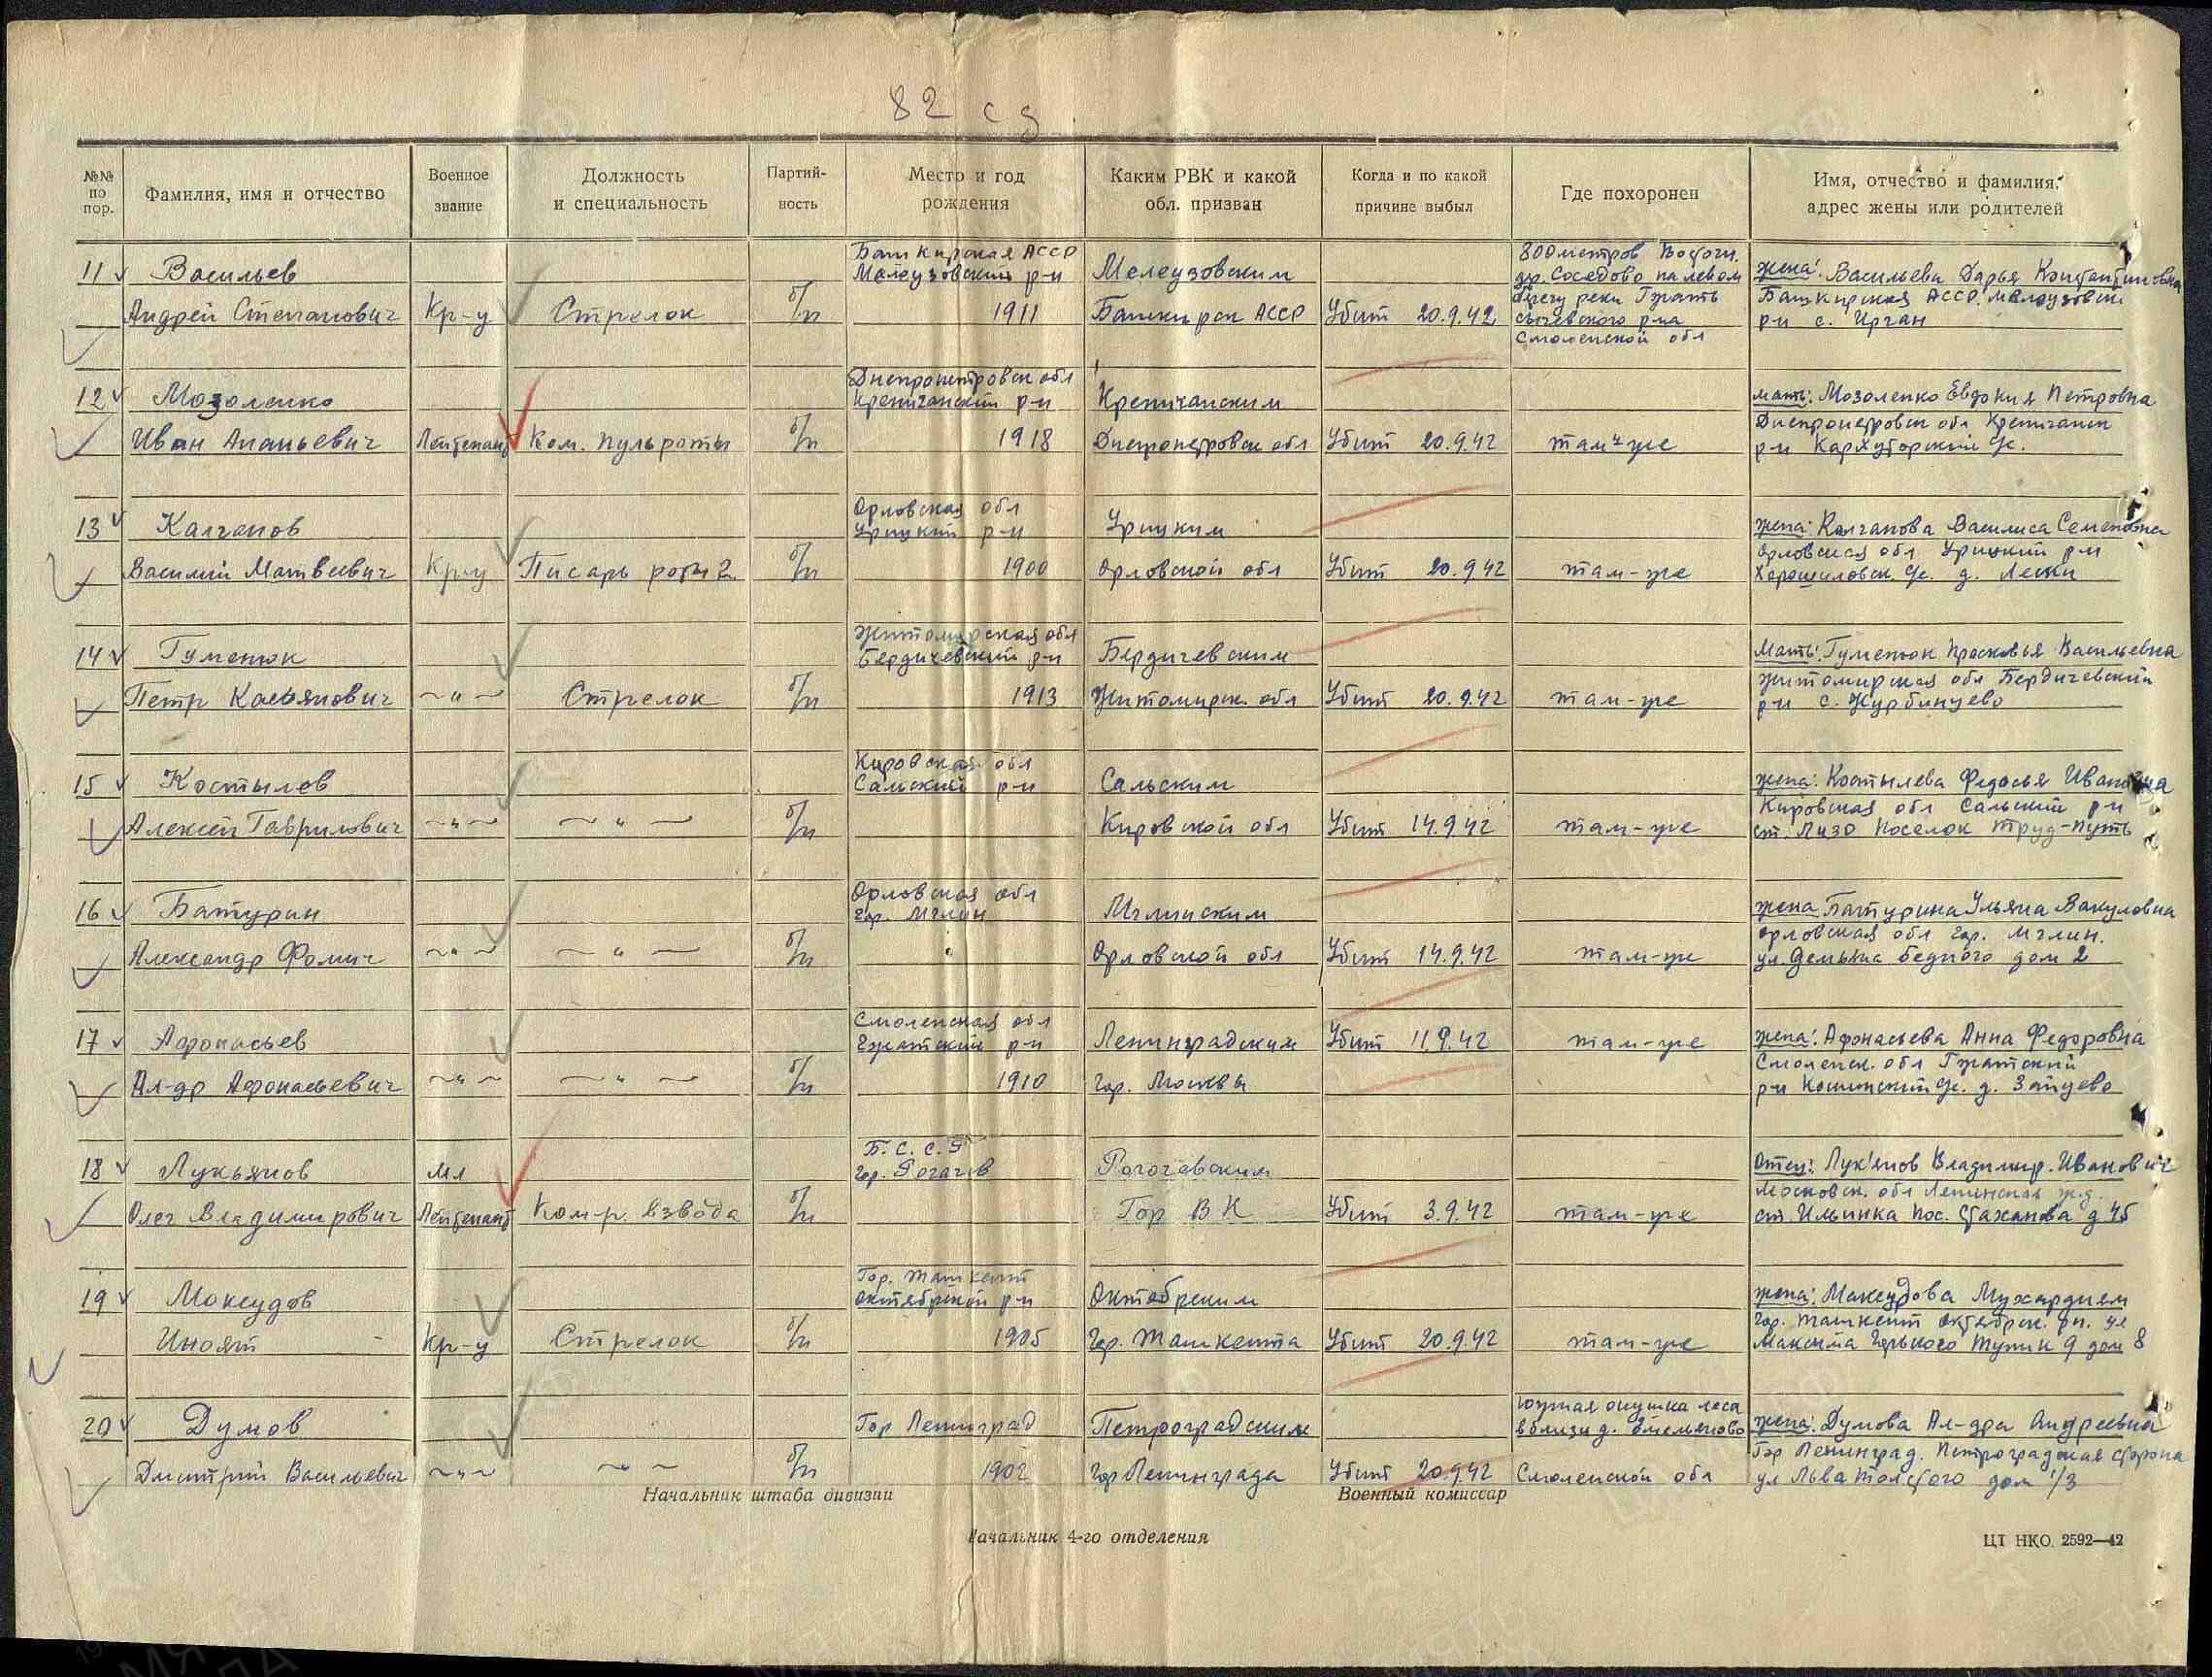 82 сд
№№ по пор.
Фамилия, имя и отчество
Военное звание
Должность и специальность
Партий-ность
Место и год рождения
Каким РВК и какой обл. призван
Когда и по какой причине выбыл
Где похоронен
Имя, отчество и фамилия, адрес жены или родителей
11 Васильев
Андрей Степанович Кр-ц Стрелок б/п
Башкирская АССР
Мелеузовский р-н
1911
Мелеузовским
Башкирск АССР
Убит 20.9.42
800 метров Восточн.
дер. Соседово на левом
берегу реки Гжать
Сычевского р-на
Смоленской обл
жена: Васильева Дарья Константиновна
Башкирская АССР Мелеузовский
р-н с. Ирган
12 Мозоленко
Иван Ананьевич Лейтенант Ком. пульроты б/п
Днепропетровск обл
р-н
1918
Днепропетровск обл
Убит 20.9.42
там-же
мать: Мозоленко Евдокия Петровна
Днепропетровск обл
р-н
13 Калганов
Василий Матвеевич Кр-ц Писарь роты б/п
Орловская обл
Урицкий р-н
1900
Урицким
Орловской обл
Убит 20.9.42
там-же
жена: Калганова Василиса Семеновна
Орловская обл Урицкий р-н
Хорошиловск. с/с. д. Лески
14 Гуменюк
Петр Касьянович —"— Стрелок б/п
Житомирская обл
Бердичевский р-н
1913
Бердичевским
Житомирск. обл
Убит 20.9.42
там-же
Мать: Гуменюк Прасковья Васильевна
Житомирская обл Бердичевский
р-н с. Журбинцево
15 Костылов
Алексей Гаврилович —"— —"— б/п
Кировская обл
Сальский р-н
Сальским
Кировской обл
Убит 14.9.42
там-же
жена: Костылева Федосья Ивановна
Кировская обл Сальский р-н
ст. Лизо поселок Труд-путь
16 Батурин
Александр Фомич —"— —"— б/п
Орловская обл
гор. Мглин
Мглинским
Орловской обл
Убит 14.9.42
там-же
жена Батурина Ульяна Вакуловна
Орловская обл гор. Мглин.
ул. Демьяна бедного дом 2
17 Афонасьев
Ал-др Афонасьевич —"— —"— б/п
Смоленская обл
Гжатский р-н
1910
Ленинградским
гор. Москвы
Убит 11.9.42
там-же
жена: Афонасьева Анна Федоровна
Смоленск. обл Гжатский
р-н с/с. д. Зайцево
18 Лукьянов
Олег Владимирович
мл
Лейтенант Ком-р. взвода б/п
Б.С.С.Р
гор. Рогачев
Рогочевским
Гор ВК
Убит 3.9.42
там-же
Отец: Лук'янов Владимир. Иванович
Московск. обл Ленинская ж.д.
ст. Ильинка пос. Стаханова д 45
19 Максудов
Иноят Кр-ц Стрелок б/п
Гор. Ташкент
Октябрской р-н
1905
Октябреким
гор. Ташкента
Убит 20.9.42
там-же
жена: Максудова
гор. Ташкент Октябрск. рн. ул
Максима Горького тупик 9 дом 8
20 Думов
Дмитрий Васильевич —"— —"— б/п
Гор Ленинград
1902
Петроградским
гор Ленинграда
Убит 20.9.42
Южная опушка леса
вблизи д. Емельяново
Смоленской обл
жена: Думова Ал-дра Андреевна
Гор Ленинград. Петроградская сторона
ул Льва Толстого дом 1/3
Начальник штаба дивизии
Военный комиссар
Начальник 4-го отделения
ЦТ НКО. 2592—42